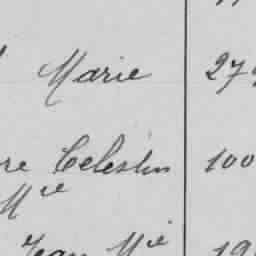 Marie 27
re Celestin 100
Mie
Jean Mie 19